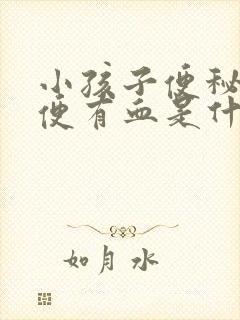 小孩子便秘
便有血是什
如月水